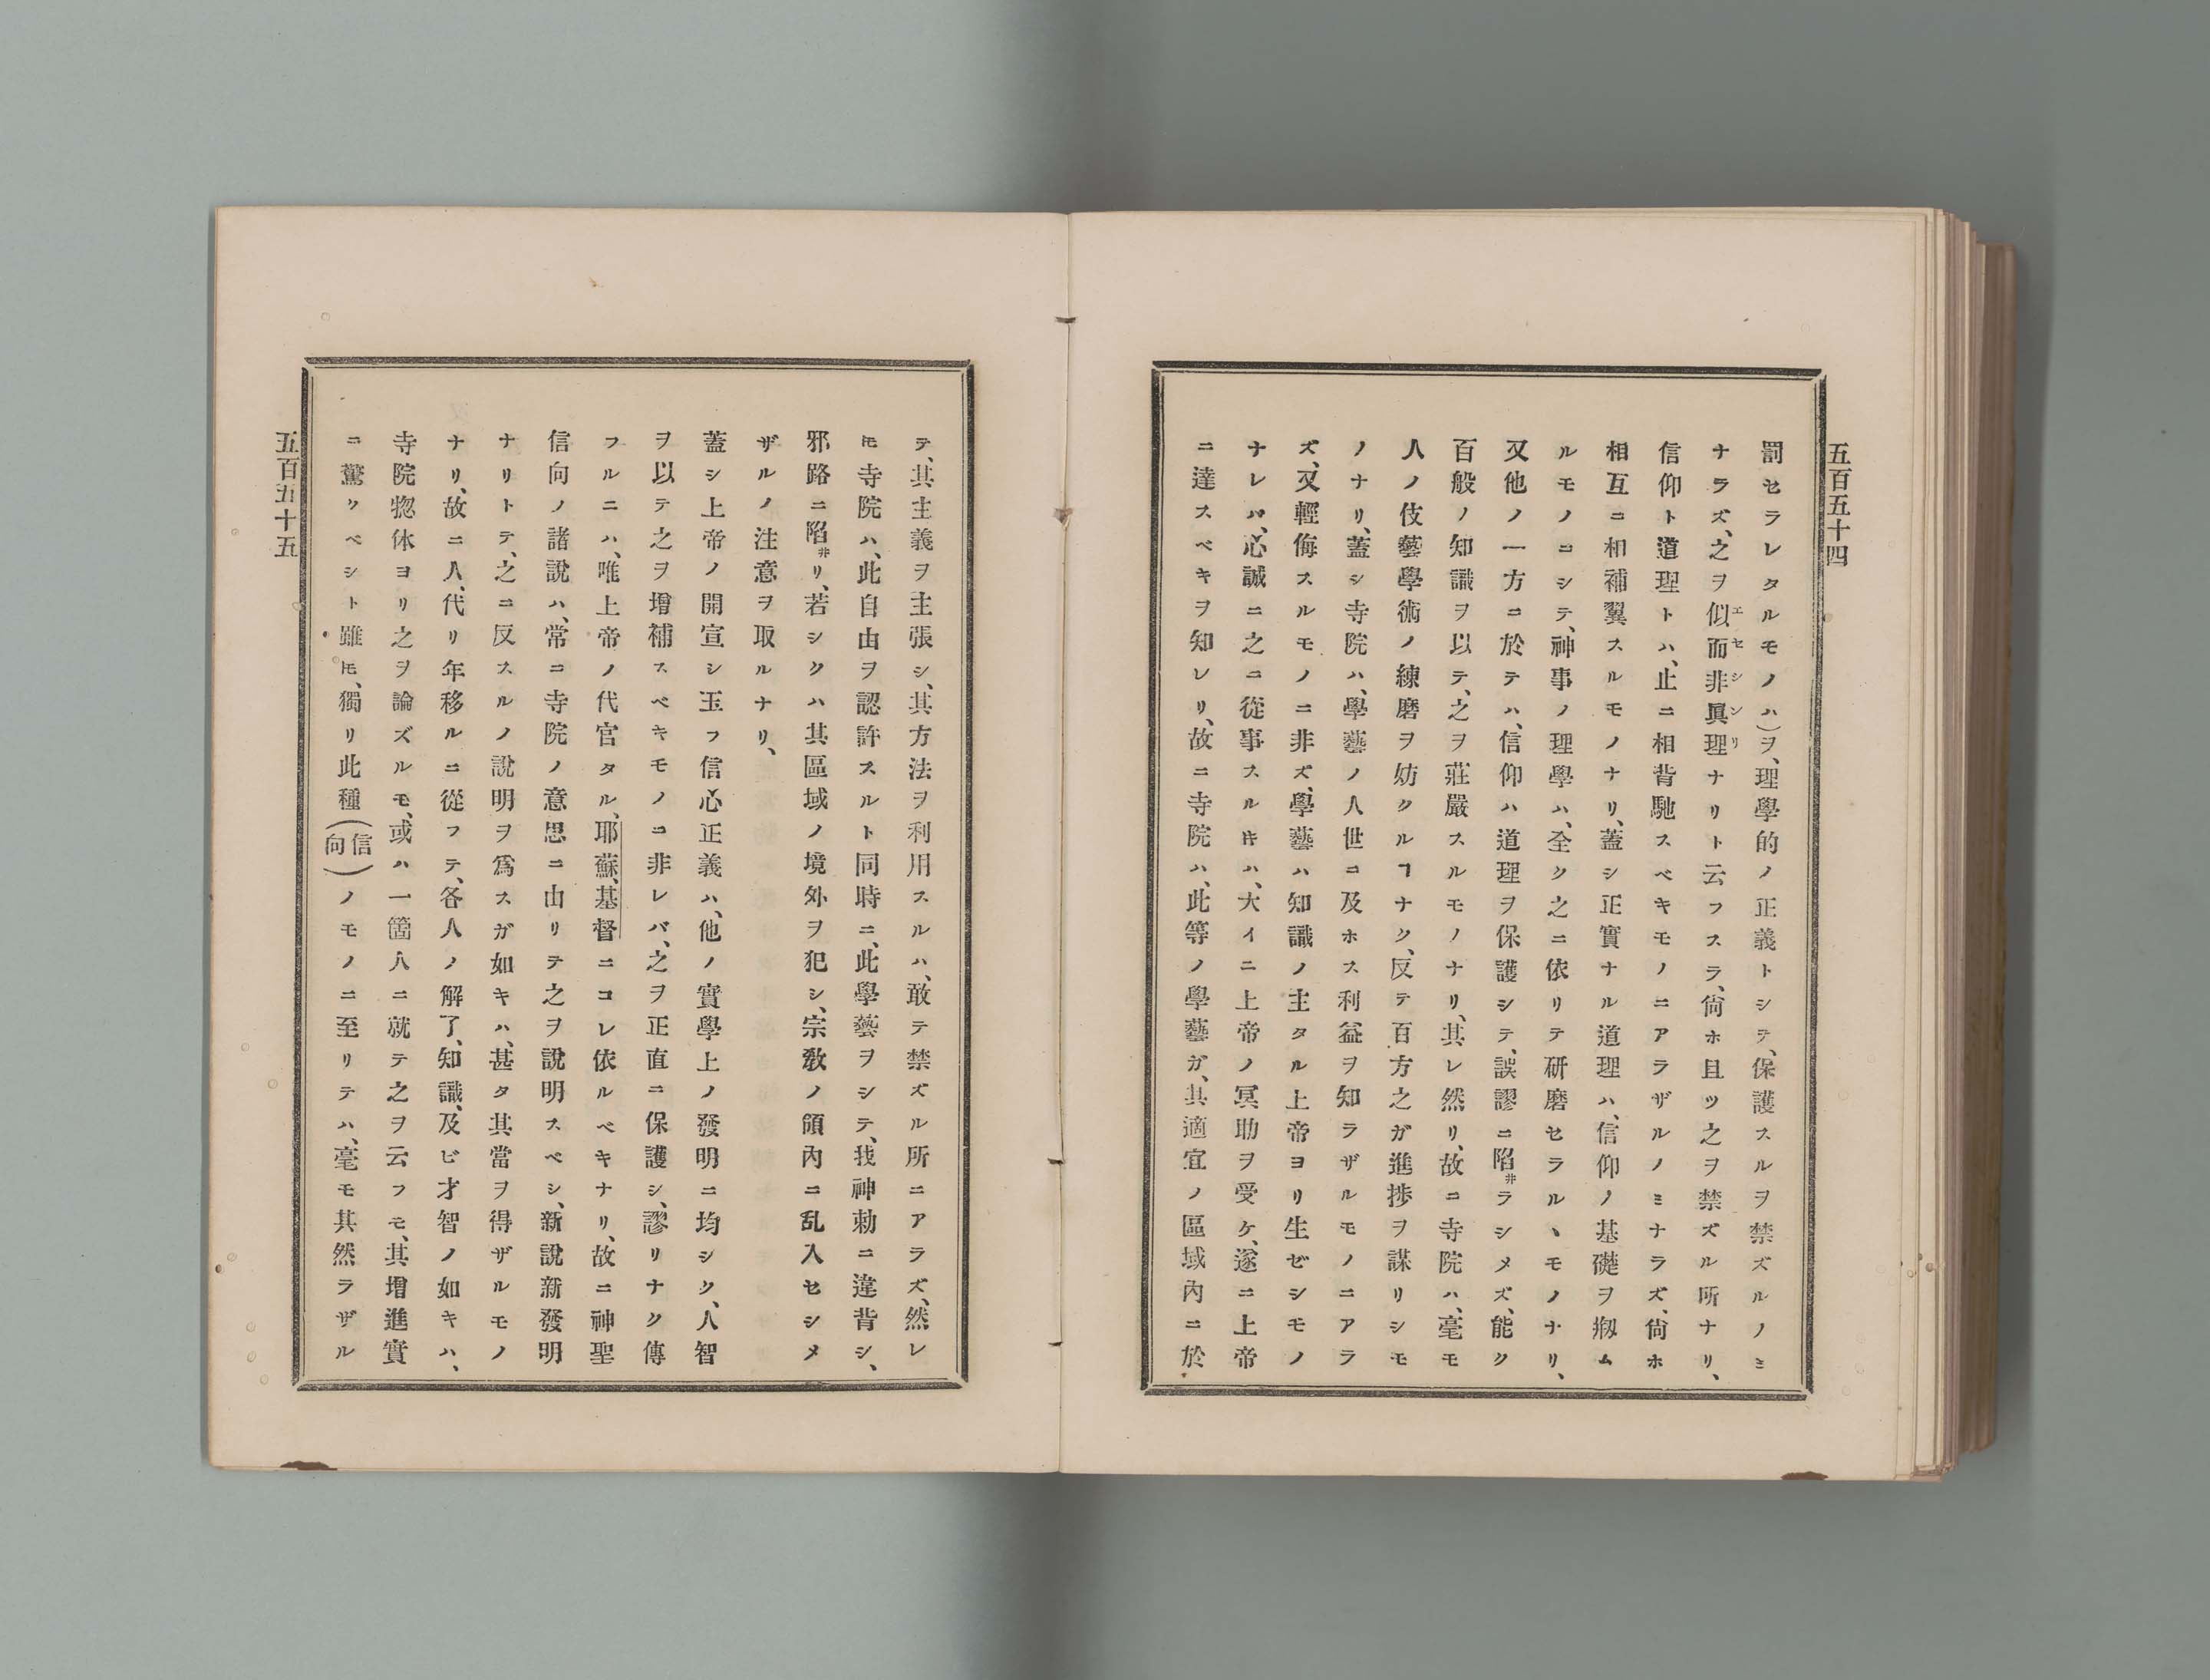 五百五十四
罰セラレタルモノハ)ヲ、理學的ノ正義トシテ、保護スルヲ禁ズルノミ
ナラズ、之ヲ似而非眞理ナリト云フスラ、尙ホ且ツ之ヲ禁ズル所ナリ、
エセシンリ
信仰ト道理トハ、止ニ相背馳スベキモノニアラザルノミナラズ、尙ホ
相互ニ相補翼スルモノナリ、蓋シ正實ナル道理ハ、信仰ノ基礎ヲ剏ム
ルモノニシテ、神事ノ理學ハ、全ク之ニ依リテ硏磨セラルヽモノナリ、
又他ノ一方ニ於テハ、信仰ハ道理ヲ保護シテ、誤謬ニ陷ヰラシメズ、能ク
百般ノ知識ヲ以テ、之ヲ莊嚴スルモノナリ、其レ然リ、故ニ寺院ハ、毫モ
人ノ伎藝學術ノ練磨ヲ妨クルヿナク、反テ百方之ガ進捗ヲ謀リシモ
ノナリ、蓋シ寺院ハ、學藝ノ人世ニ及ホス利益ヲ知ラザルモノニアラ
ズ、又輕侮スルモノニ非ズ、學藝ハ知識ノ主タル上帝ヨリ生ゼシモノ
ナレバ、心誠ニ之ニ從事スルキハ、大イニ上帝ノ冥助ヲ受ケ、遂ニ上帝
ニ達スベキヲ知レリ、故ニ寺院ハ、此等ノ學藝ガ、其適宜ノ區域內ニ於
テ、其主義ヲ主張シ、其方法ヲ利用スルハ、敢テ禁ズル所ニアラズ、然レ
𪜈寺院ハ、此自由ヲ認許スルト同時ニ、此學藝ヲシテ、我神勅ニ違背シ、
邪路ニ陷ヰリ、若シクハ其區域ノ境外ヲ犯シ、宗敎ノ領內ニ乱入セシメ
ザルノ注意ヲ取ルナリ、
蓋シ上帝ノ開宣シ玉フ信心正義ハ、他ノ實學上ノ發明ニ均シク、人智
ヲ以テ之ヲ增補スベキモノニ非レバ、之ヲ正直ニ保護シ、謬リナク傳
フルニハ、唯上帝ノ代官タル、耶蘇、基督ニコレ依ルベキナリ、故ニ神聖
信向ノ諸說ハ、常ニ寺院ノ意思ニ由リテ之ヲ說明スベシ、新說新發明
ナリトテ、之ニ反スルノ說明ヲ爲スガ如キハ、甚タ其當ヲ得ザルモノ
ナリ、故ニ人、代リ年移ルニ從フテ、各人ノ解了、知識、及ビ才智ノ如キハ、
寺院惣体ヨリ之ヲ論ズルモ、或ハ一箇人ニ就テ之ヲ云フモ、其增進實
ニ驚クベシト雖𪜈、獨リ此種(信向)ノモノニ至リテハ、毫モ其然ラザル
五百五十五